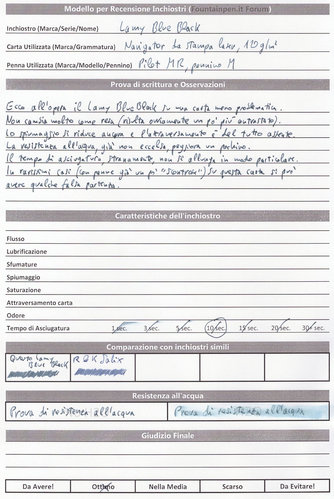 Modello per Recensione Inchiostri (Fountainpen.it Forum)
Inchiostro (Marca/Serie/Nome) Lamy Blue Black
Carta Utilizzata (Marca/Grammatura) Navigator La stampa laser, 110 g/m²
Penna Utilizzata (Marca/Modello/Pennino) Pilot MR, pennino M
Prova di scrittura e Osservazioni
Ecco all'opera il Lamy Blue Black su una carta meno problematica.
Non cambia molto come resa (risulta ovviamente un po' più contrastato).
Lo spiumaggio si riduce ancora e l'attraversamento è del tutto assente.
La resistenza all'acqua, già non eccelsa, peggiora un pochino.
Il tempo di asciugatura, stranamente, non si allunga in modo particolare.
In rarissimi casi (con penne già un po' "scontrose") su questa carta si può
avere qualche falsa partenza.
Caratteristiche dell'inchiostro
Flusso
Lubrificazione
Sfumature
Spiumaggio
Saturazione
Attraversamento carta
Odore
Tempo di Asciugatura 1 sec. 3 sec. 5 sec. 10 sec. 15 sec. 20 sec. 30+ sec.
Comparazione con inchiostri simili
Questo Lamy R&K Salix
Blue Black
Resistenza all'acqua
Prova di resistenza all'acqua Prova di resistenza all'acqua
Giudizio Finale
Da Avere! Ottimo Nella Media Scarso Da Evitare!